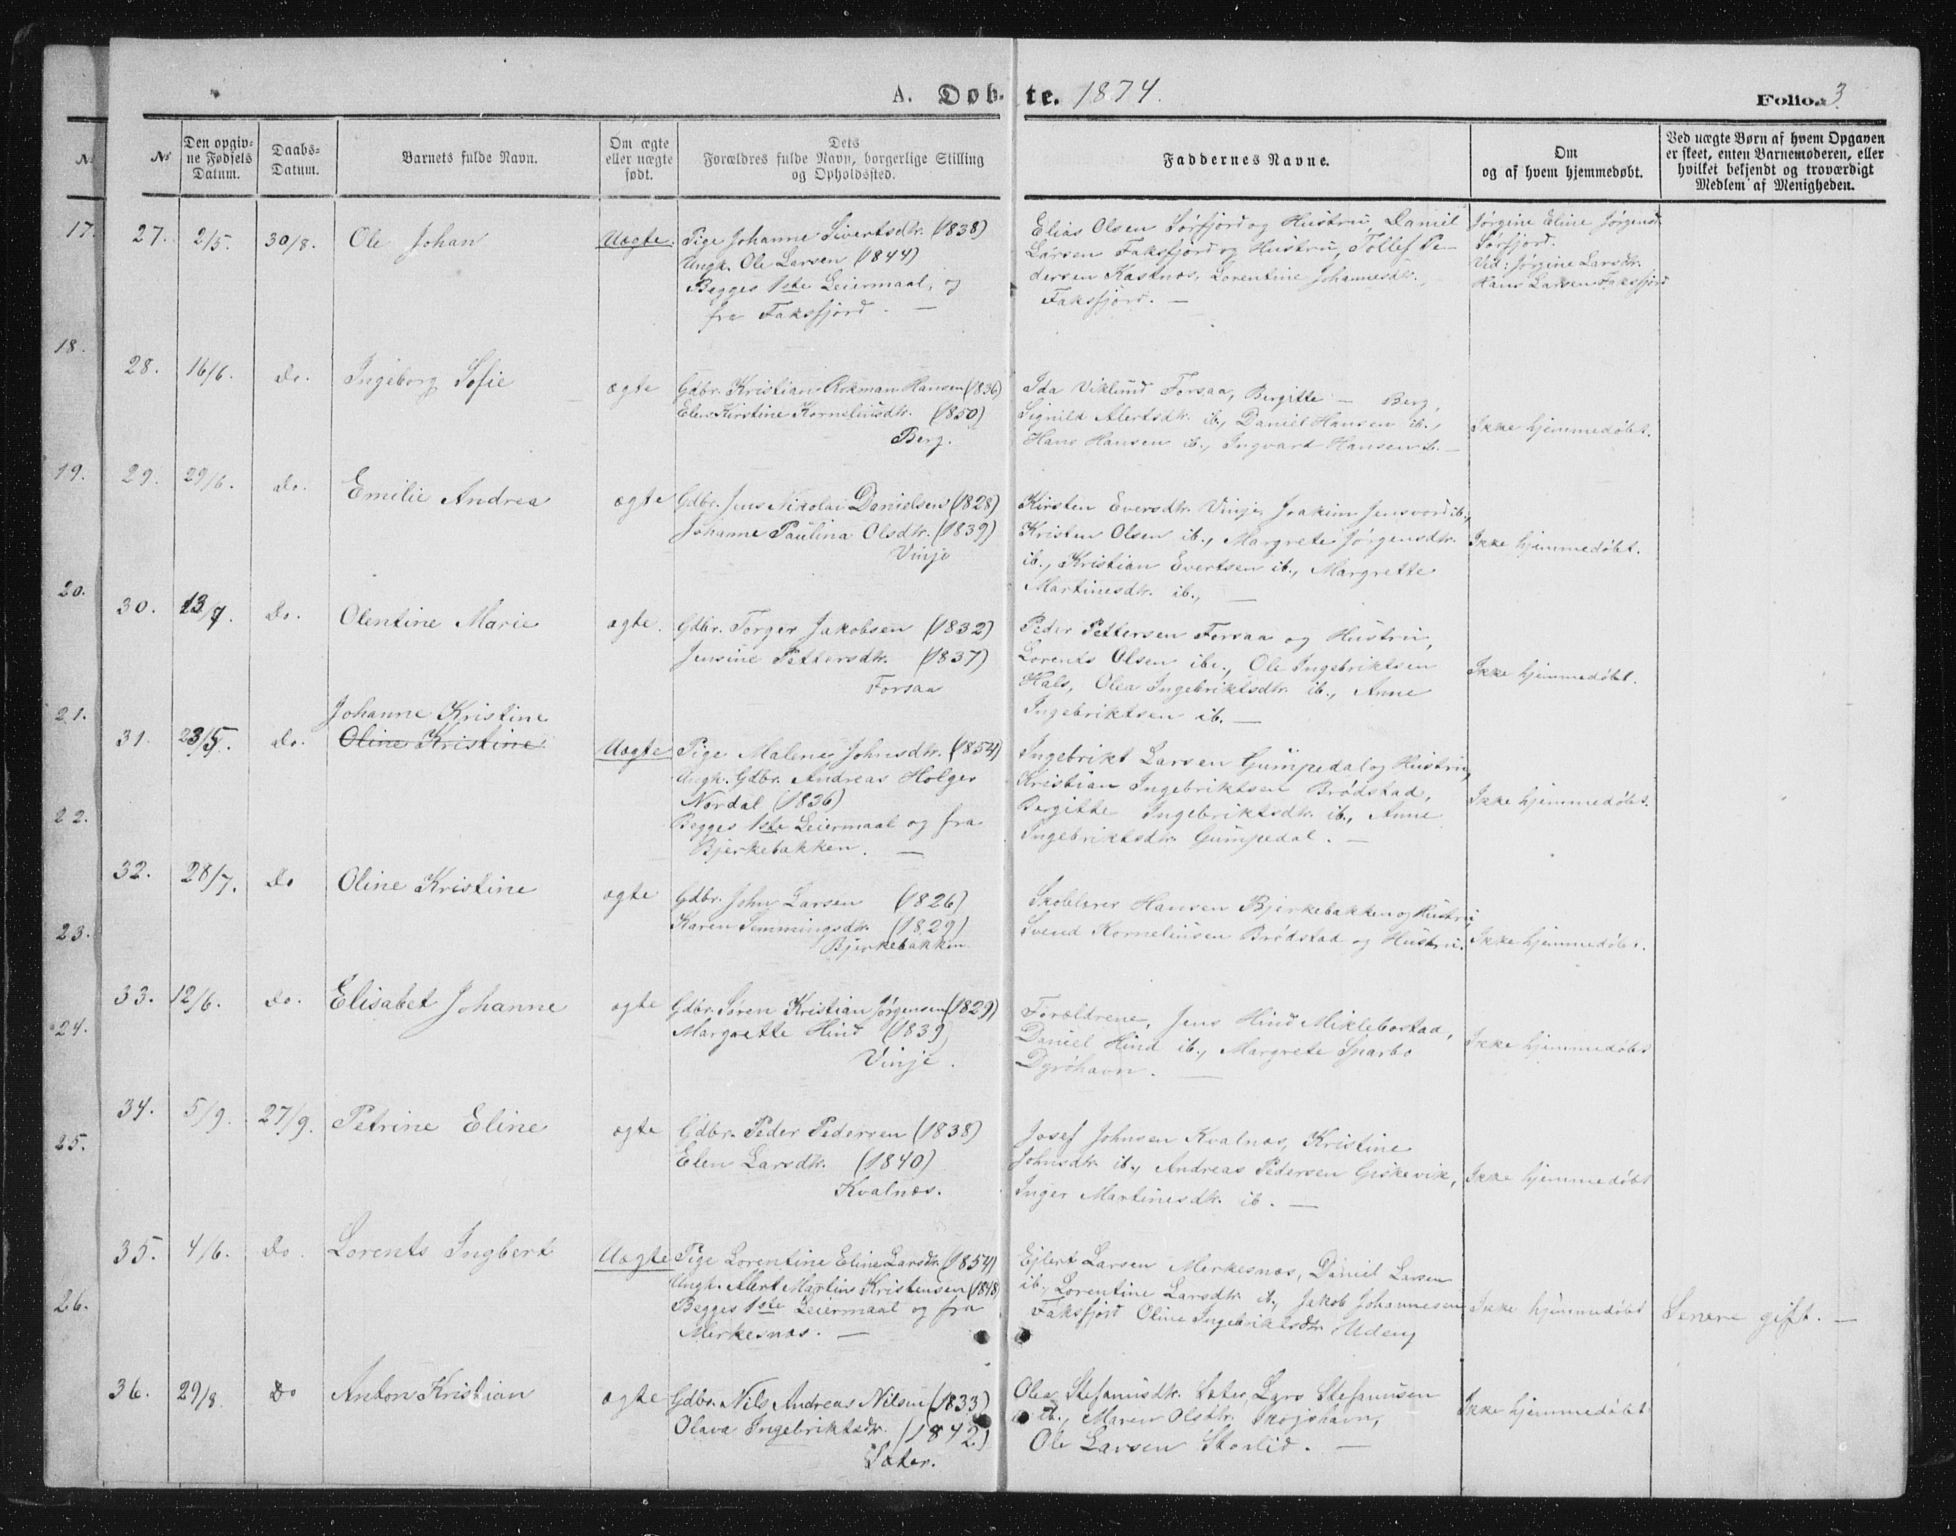 A. Døb- te. 1874.
Folio 3
No
No
Den opgiv-
ne Fødsels
Datum.
Daabs-
Datum.
Barnets fulde Navn.
Om ægte
eller uægte
født.
Dets
Forældres fulde Navn, borgerlige Stilling
og Opholdssted.
Faddernes Navne.
Om
og af hvem hjemmedøbt.
Ved uægte Børn af hvem Opgaven
er skeet, enten Barnemoderen, eller
hvilket bekjendt og troværdigt
Medlem af Menigheden.
17.
18.
19.
20.
21.
22.
23.
24.
25.
26.
27. 2/5. 30/8. Ole Johan Uægte.
Pige Johanne Sivertsdtr. (1838)
Ungk. Ole Larsen (1844)
Begges 1ste Leiermaal, og
fra Faksfjord. —
Elias Olsen Sørfjord og Hustru, Daniel
Larsen Faksfjord og Hustru, Tollef Pe-
dersen Kastnæs, Lorentine Johannesdtr.,
Faksfjord. —
Jørgine Eline Jørgensd.
Sørfjord.
Vid: Jørgine Larsdtr.
Hans Larsen Faksfjord
28. 16/6. Do. Ingeborg Sofie ægte
Gdbr. Kristian Hansen (1836)
Elen Kirstine Korneliusdtr. (1850)
Berg.
Ida Viklund Forsaa, Bergitte — Berg,
Signild Alertsdtr. ib., Daniel Hansen ib.,
Hans Hansen ib., Ingvard Hansen ib. —
Ikke hjemmedøbt.
29. 29/6. Do. Emilie Andrea ægte
Gdbr. Jens Nikolai Danielsen (1828)
Johanne Paulina Olsdtr. (1839)
Vinje
Kirsten Eversdtr. Vinje, Joakim Jensvord ib.,
Kristen Olsen ib., Margrete Jørgensdtr.
ib., Kristian Evertsen ib., Margrette
Martinesdtr. ib., —
Ikke hjemmedøbt.
30. 13/7. Do. Olentine Marie ægte.
Gdbr. Torger Jakobsen (1832)
Jensine Pettersdtr. (1837)
Forsaa
Peder Pettersen Forsaa og Hustru,
Lorents Olsen ib., Ole Ingebriktsen
Hals, Olea Ingebriktsdtr. ib., Anne
Ingebriktsen ib. —
Ikke hjemmedøbt.
Johanne Kristine
31. 23/5. Do. Oline Kristine Uægte
Pige Malene Johnsdtr. (1854)
Ungk. Gdbr. Andreas Holger
Nordal (1836)
Begges 1ste Leiermaal og fra
Bjerkebakken. —
Ingebrikt Larsen Gumpedal og Hustru,
Kristian Ingebriktsen Brødstad,
Bergitte Ingebriktsdtr. ib., Anne
Ingebriktsdtr. Gumpedal. —
Ikke hjemmedøbt.
32. 28/7. Do Oline Kristine ægte
Gdbr. John Larsen (1826)
Karen Simmingsdtr. (1829)
Bjerkebakken
Skolelærer Hansen Bjerkebakken og Hustru,
Svend Korneliusen Brødstad og Hustru.
Ikke hjemmedøbt.
33. 12/6. Do. Elisabet Johanne ægte
Gdbr. Søren Kristian Jørgensen (1829)
Margrette Hind (1839)
Vinje.
Forældrene, Jens Hind Miklebostad,
Daniel Hind ib., Margrete Sparbo
Dyrøhavn. —
Ikke hjemmedøbt
34. 5/9. 27/9. Petrine Eline ægte
Gdbr. Peder Pedersen (1838)
Elen Larsdtr. (1840)
Kvalnæs.
Josef Johnsen Kvalnæs, Kristine
Johnsdtr. ib., Andreas Pedersen Giskevik,
Inger Martinesdtr. ib. —
Ikke hjemmedøbt
35. 4/6. Do. Lorents Ingbert Uægte
Pige Lorentine Eline Larsdtr. (1854)
Ungk. Alert Martins Kristensen (1848)
Begges 1ste Leiermaal og fra
Merkesnæs. —
Ejlert Larsen Merkesnæs, Daniel Larsen
ib., Lorentine Larsdtr. ib., Jakob Johannesen
Faksfjord Oline Ingebriktsdtr. Udeng
Ikke hjemmedøbt
Senere gift. —
36. 29/8. Do Anton Kristian ægte
Gdbr. Nils Andreas Nilsen (1833)
Olava Ingebriktsdtr. (1842)
Sæter.
Olea Stefanusdtr. Sæter, Lars Stefanusen
ib., Maren Olsdtr. Skøjshavn,
Ole Larsen Storlid. —
Ikke hjemmedøbt